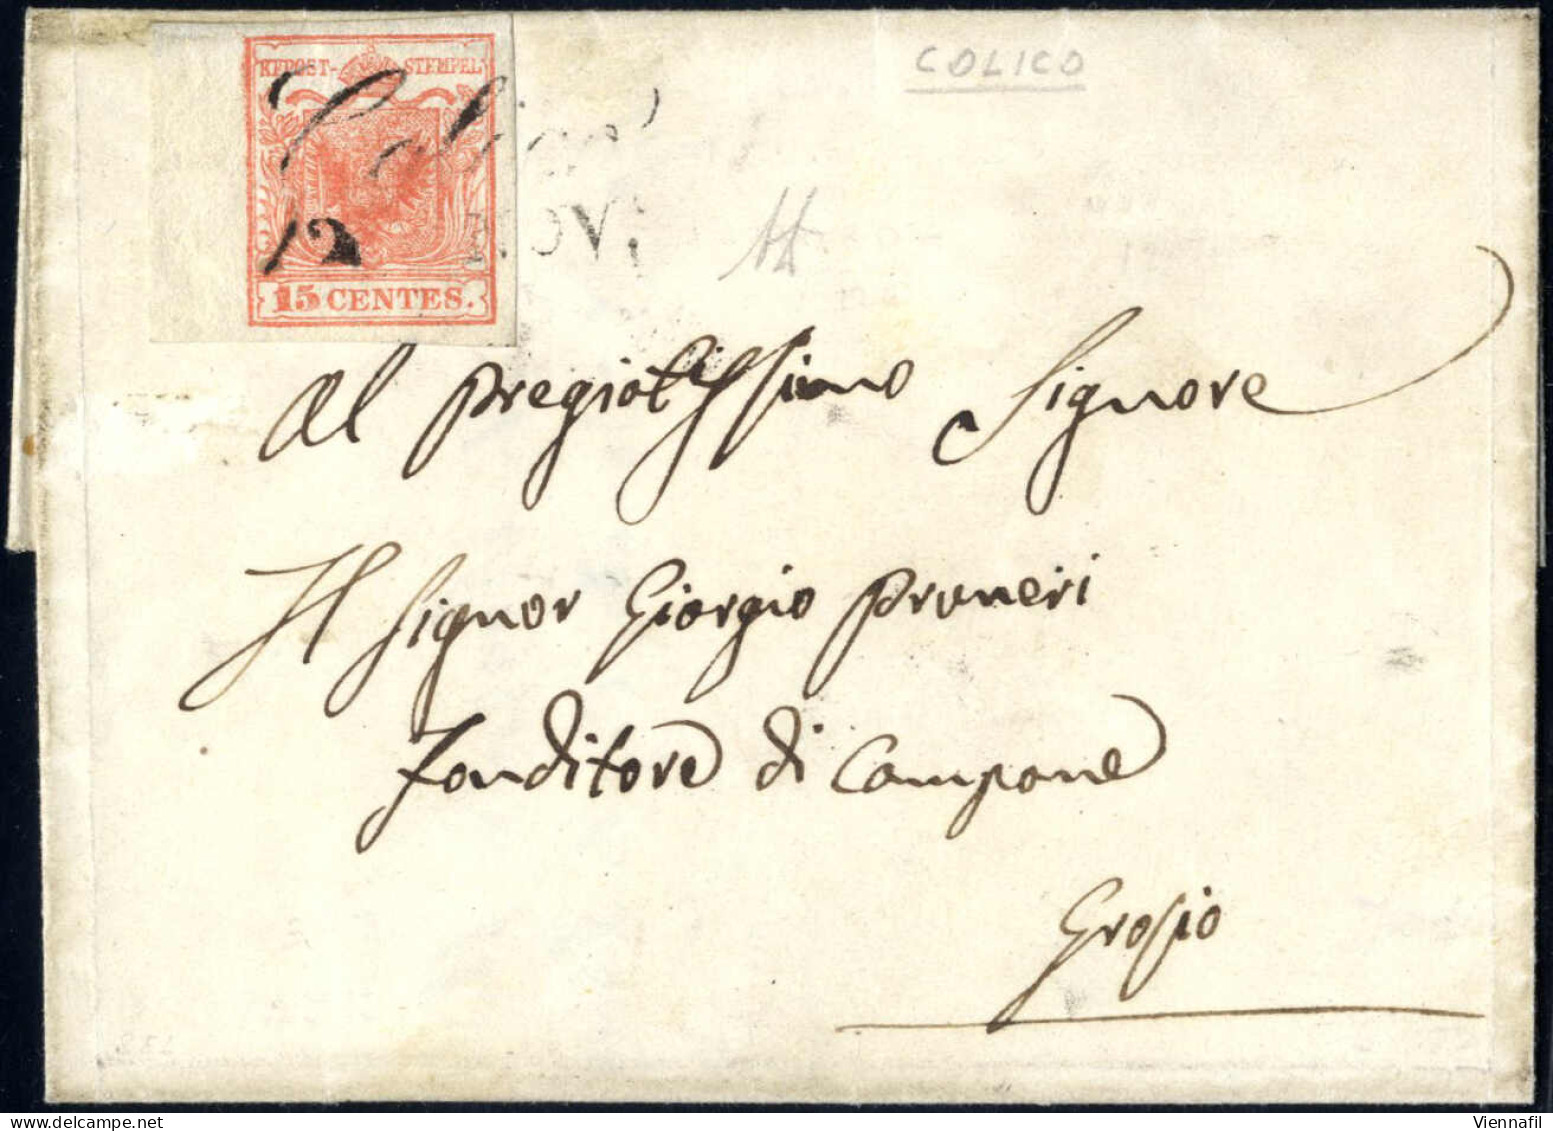 COLICO
KKPOST- STEMPEL
Colico
12 NOV.
15 CENTES.
Al Pregiatissimo Signore
Il Signor Giorgio Pruneri
Fonditore di Campane
Grosio
Viennafil